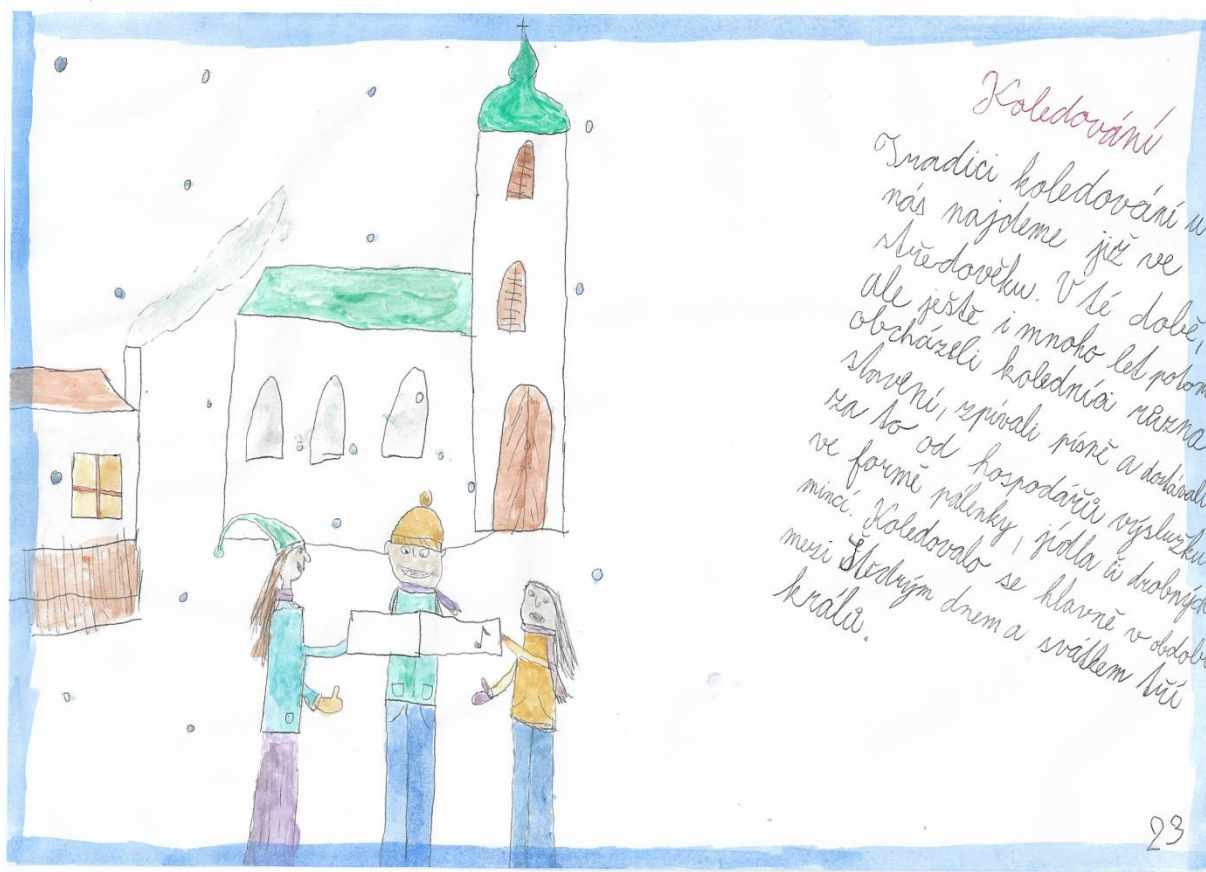 Koledování
Tradici koledování u
nás najdeme již ve
středověku. V té době,
ale ještě i mnoho let potom
obcházeli koledníci různá
stavení, zpívali písně a dostávali
za to od hospodářů výslužku
ve formě pálenky, jídla či drobných
mincí. Koledovalo se hlavně v období
mezi Štědrým dnem a svátkem tří
králů.
23